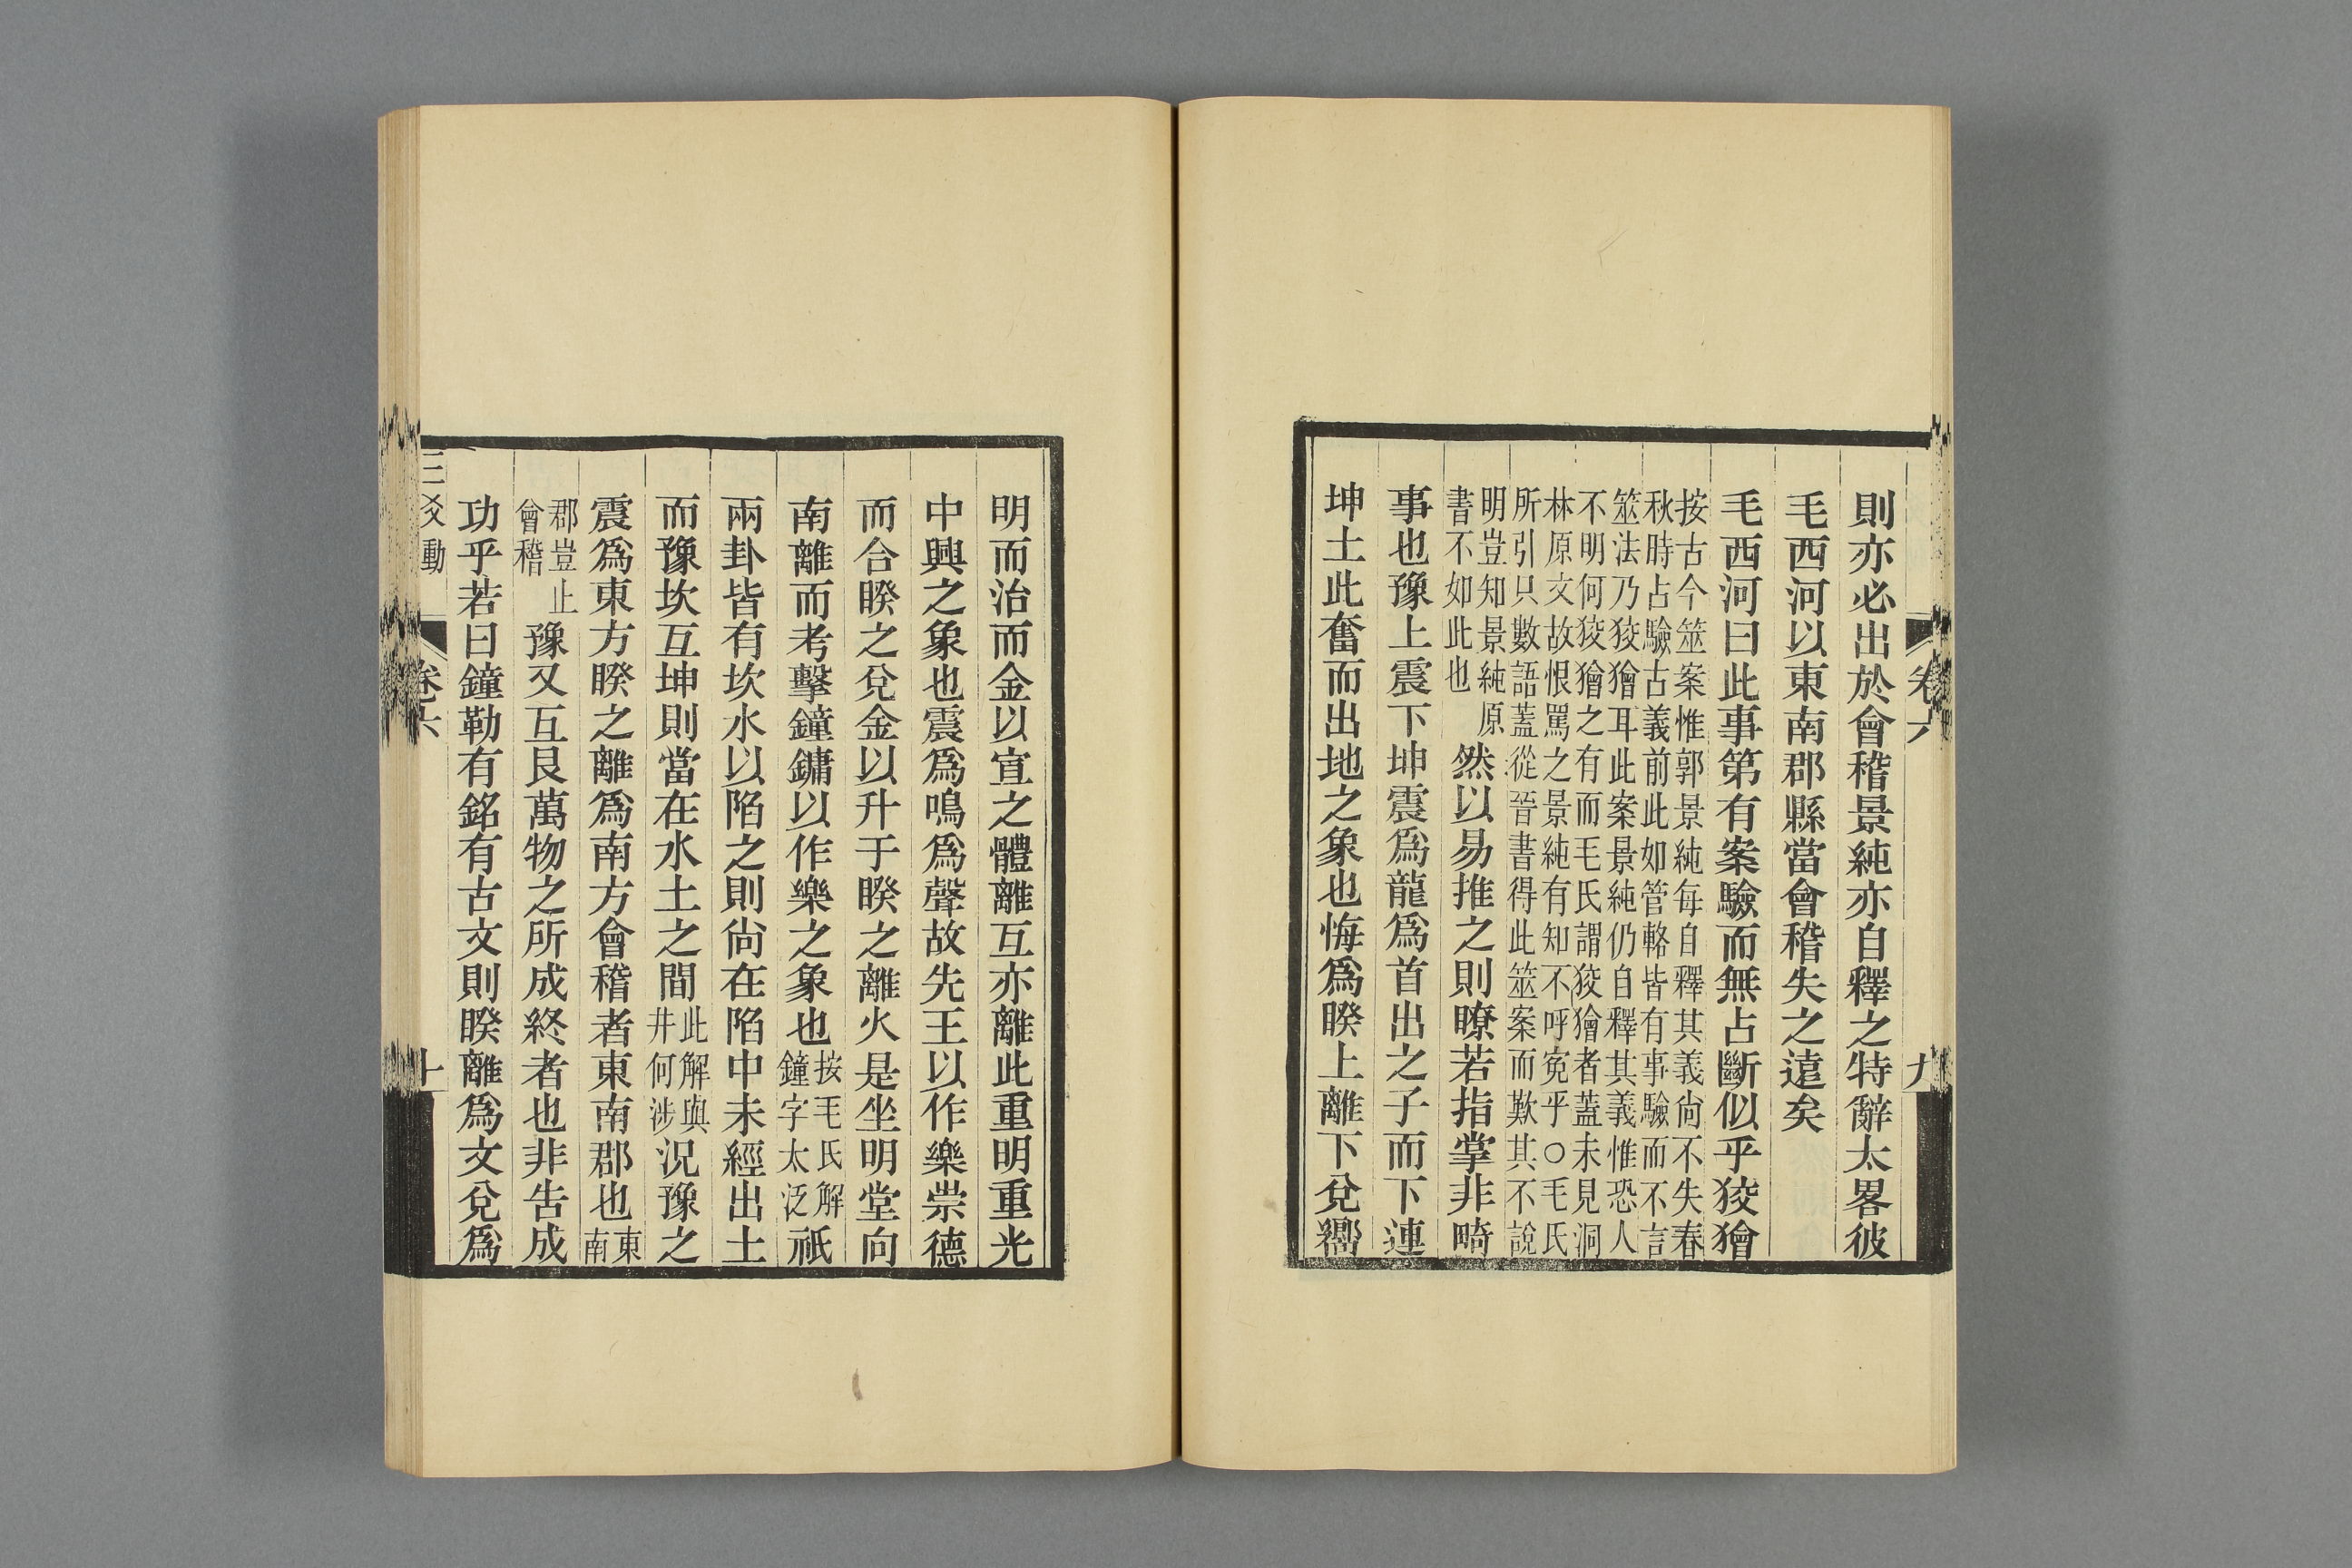 卷六
九
則亦必出於會稽景純亦自釋之特辭太畧彼
毛西河以東南郡縣當會稽失之遠矣
毛西河曰此事第有案驗而無占斷似乎狡獪
按古今筮案惟郭景純每自釋其義尙不失春
秋時占驗古義前此如管輅皆有事驗而不言
筮法乃狡獪耳此案景純仍自釋其義惟恐人
不明何狡獪之有而毛氏謂狡獪者蓋未見洞
林原文故恨罵之景純有知不呼寃乎○毛氏
所引只數語蓋從晉書得此筮案而歎其不說
明豈知景純原
書不如此也
然以易推之則瞭若指掌非畸
事也豫上震下坤震爲龍爲首出之子而下連
坤土此奮而出地之象也悔爲睽上離下兌嚮
明而治而金以宣之體離互亦離此重明重光
中興之象也震爲鳴爲聲故先王以作樂崇德
而合睽之兌金以升于睽之離火是坐明堂向
南離而考擊鐘鏞以作樂之象也
按毛氏解
鐘字太泛
祇
兩卦皆有坎水以陷之則尙在陷中未經出土
而豫坎互坤則當在水土之間
此解與
井何涉
況豫之
震爲東方睽之離爲南方會稽者東南郡也
東
南
郡豈止
會稽
豫又互艮萬物之所成終者也非告成
功乎若曰鐘勒有銘有古文則睽離爲文兌爲
三爻動
卷六
十